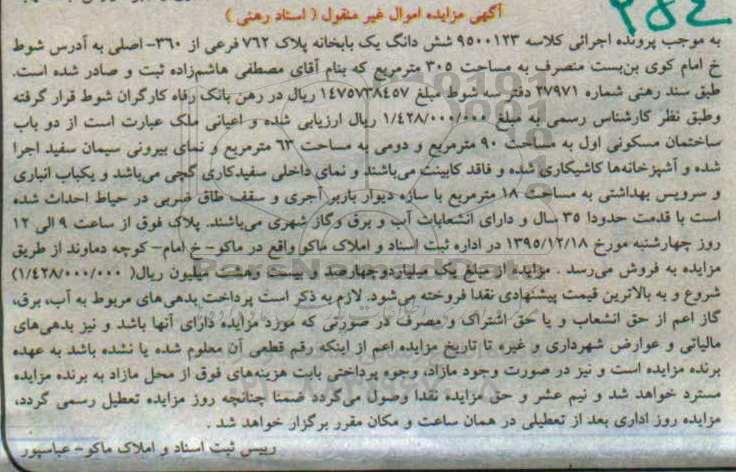 آگهی مزایده اموال غیر منقول ( اسناد رهنی )
به موجب پرونده اجرائی کلاسه ۹۵۰۰۱۲۳ شش دانگ یک بابخانه پلاک ۷۶۲ فرعی از ۳۶۰- اصلی به آدرس شوط
خ امام کوی بن‌بست منصرف به مساحت ۳۰۵ مترمربع که بنام آقای مصطفی هاشم‌زاده ثبت و صادر شده است.
طبق سند رهنی شماره ۲۷۹۷۱ دفتر سه شوط مبلغ ۱۴۷۵۷۳۸۴۵۷ ریال در رهن بانک رفاه کارگران شوط قرار گرفته
وطبق نظر کارشناس رسمی به مبلغ ۱/۴۲۸/۰۰۰/۰۰۰ ریال ارزیابی شده و اعیانی ملک عبارت است از دو باب
ساختمان مسکونی اول به مساحت ۹۰ مترمربع و دومی به مساحت ۶۳ مترمربع و نمای بیرونی سیمان سفید اجرا
شده و آشپزخانه‌ها کاشیکاری شده و فاقد کابینت می‌باشند و نمای داخلی سفیدکاری گچی می‌باشد و یکباب انباری
و سرویس بهداشتی به مساحت ۱۸ مترمربع با سازه دیوار باربر آجری و سقف طاق ضربی در حیاط احداث شده
است با قدمت حدودا ۳۵ سال و دارای انشعابات آب و برق وگاز شهری می‌باشند. پلاک فوق از ساعت ۹ الی ۱۲
روز چهارشنبه مورخ ۱۳۹۵/۱۲/۱۸ در اداره ثبت اسناد و املاک ماکو واقع در ماکو- خ امام- کوچه دماوند از طریق
مزایده به فروش می‌رسد . مزایده از مبلغ یک میلیاردوچهارصد و بیست وهشت میلیون ریال( ۱/۴۲۸/۰۰۰/۰۰۰)
شروع و به بالاترین قیمت پیشنهادی نقدا فروخته می‌شود. لازم به ذکر است پرداخت بدهی‌های مربوط به آب، برق،
گاز اعم از حق انشعاب و یا حق اشتراک و مصرف در صورتی که مورد مزایده دارای آنها باشد و نیز بدهی‌های
مالیاتی و عوارض شهرداری و غیره تا تاریخ مزایده اعم از اینکه رقم قطعی آن معلوم شده یا نشده باشد به عهده
برنده مزایده است و نیز در صورت وجود مازاد، وجوه پرداختی بابت هزینه‌های فوق از محل مازاد به برنده مزایده
مسترد خواهد شد و نیم عشر و حق مزایده نقدا وصول می‌گردد ضمنا چنانچه روز مزایده تعطیل رسمی گردد،
مزایده روز اداری بعد از تعطیلی در همان ساعت و مکان مقرر برگزار خواهد شد .
رییس ثبت اسناد و املاک ماکو- عباسپور